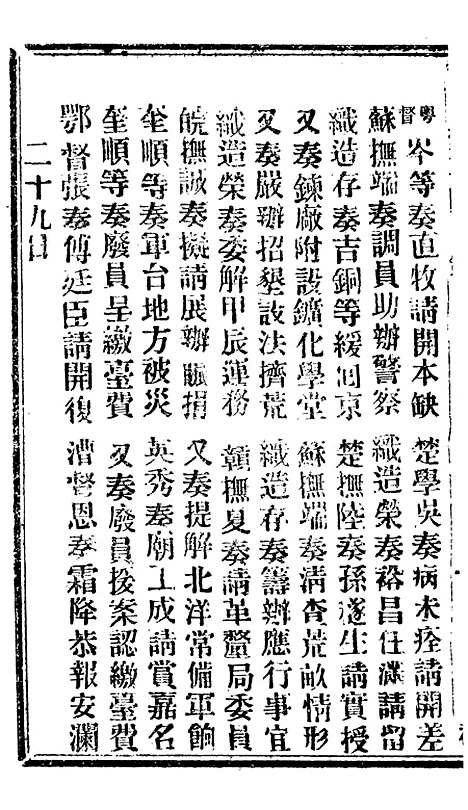 粵督岑等奏直牧請開本缺　楚學吳奏病未痊請開差
蘇撫端奏調員助辦警察　織造榮奏裕昌任滿請留
織造存奏吉銅等緩囘京　楚撫陸奏孫遂生請實授
又奏鍊廠附設鑛化學堂　蘇撫端奏清查荒畝情形
又奏嚴辦招墾設法擠荒　織造存奏籌辦應行事宜
織造榮奏委解甲辰運務　贛撫夏奏請革釐局委員
皖撫誠奏擬請展辦賑捐　又奏提解北洋常備軍餉
奎順等奏軍台地方被災　英秀奏廟工成請賞嘉名
奎順等奏廢員呈繳臺費　又奏廢員援案認繳臺費
鄂督張奏傅廷臣請開復　漕督恩奏霜降恭報安瀾
二十九日